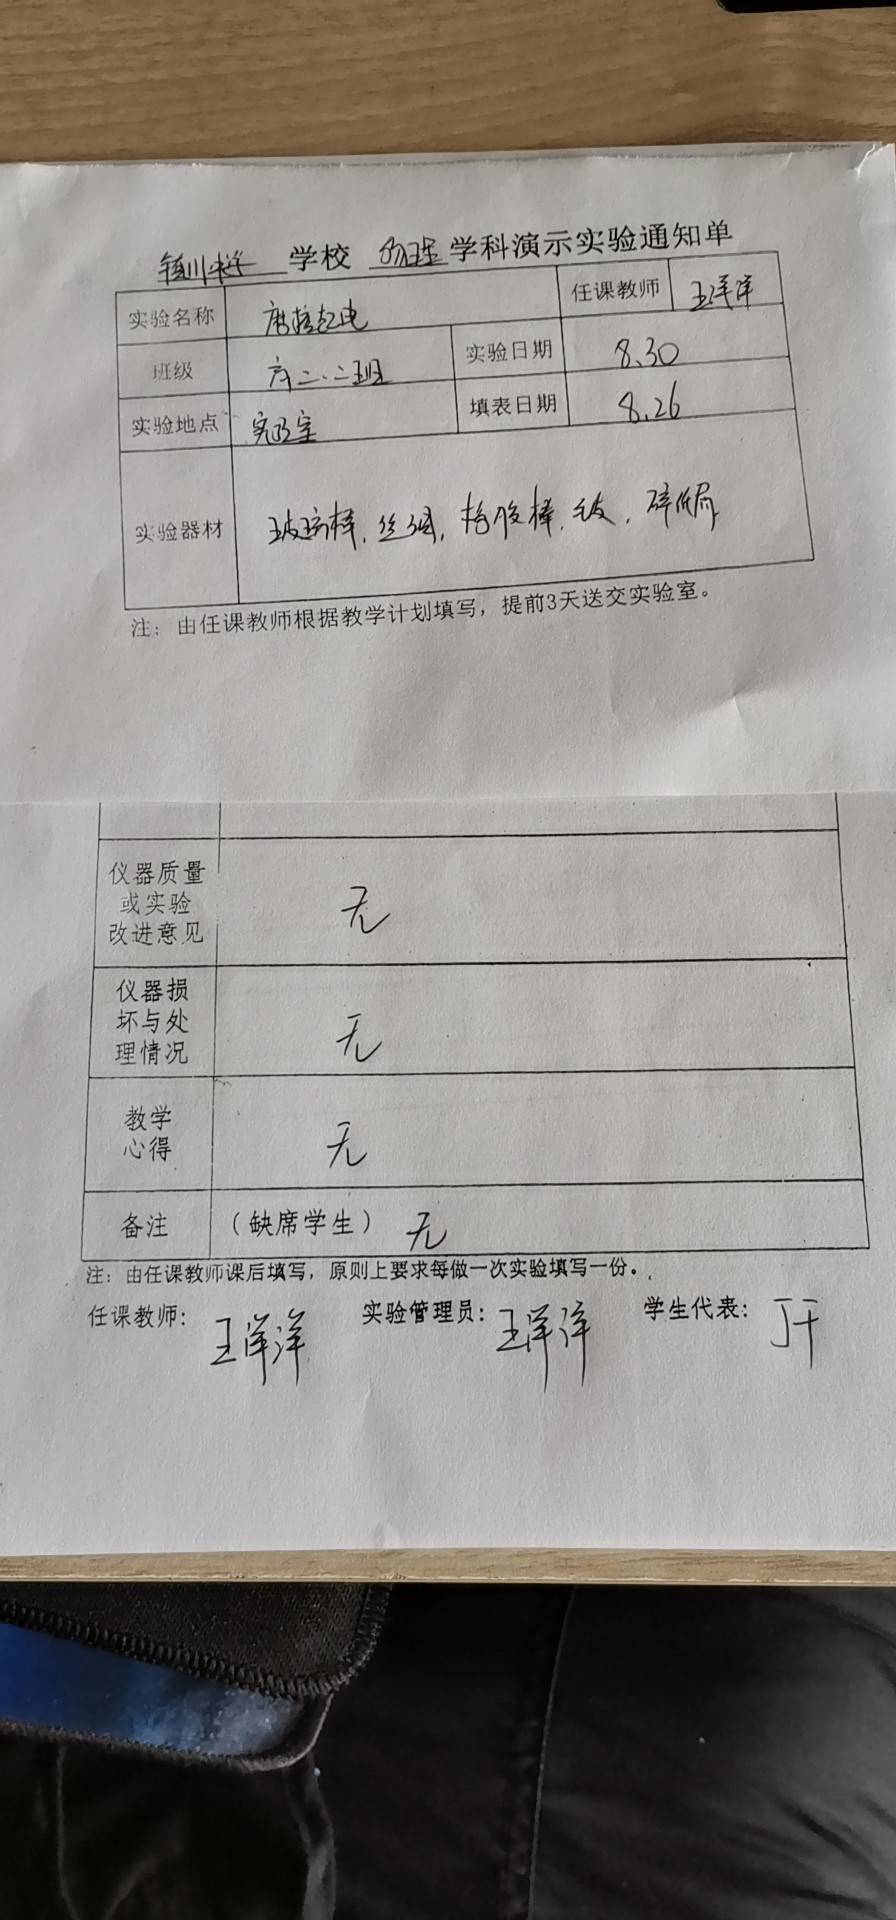 镇川中学 学校 物理 学科演示实验通知单
实验名称 摩擦起电 任课教师 王洋洋
班级 高二.二班 实验日期 8.30
实验地点 实验室 填表日期 8.26
实验器材 玻璃棒,丝绸,橡胶棒,毛皮,碎纸屑
注：由任课教师根据教学计划填写，提前3天送交实验室。
仪器质量
或实验
改进意见 无
仪器损
坏与处
理情况 无
教学
心得 无
备注 （缺席学生） 无
注：由任课教师课后填写，原则上要求每做一次实验填写一份。
任课教师： 王洋洋 实验管理员： 王洋洋 学生代表： 丁干